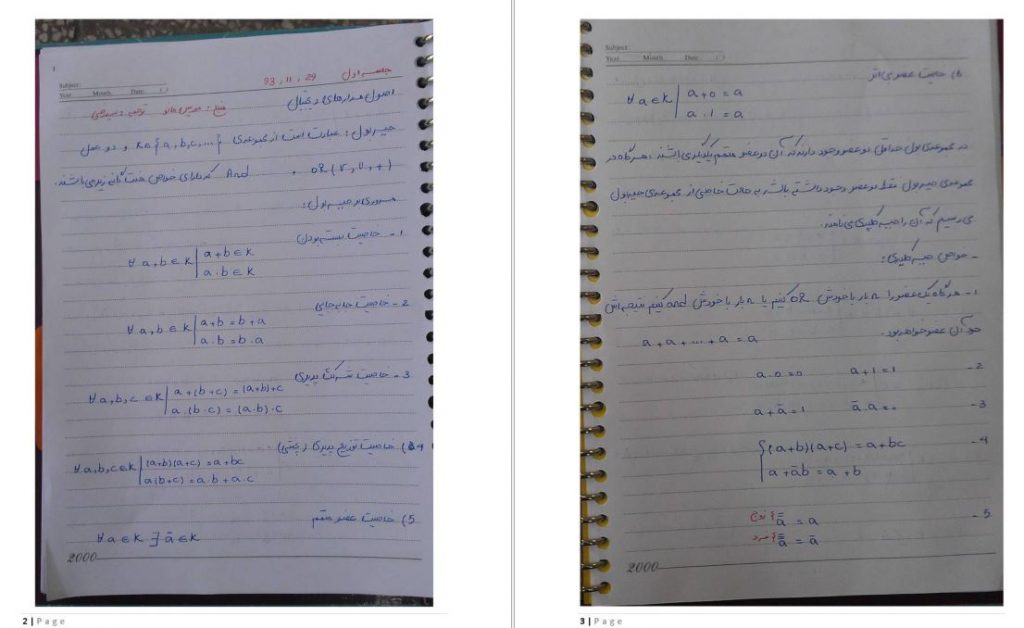 Subject:
Year. Month. Date. ( )
جلسه اول 93, 11, 29
اصول مدارهای دیجیتال منبع: موریس مانو ترجمه:
جبر بول: عبارت است از مجموعه‌ی K=>{a,b,c,...} و دو عمل
OR (٧, ∪, +) , And که دارای خواص هشت گانه‌ی زیر می‌باشند.
مروری بر جبر بول:
1- خاصیت بسته بودن
∀ a,b ∈ k | a+b ∈ k
a.b ∈ k
2- خاصیت جابه‌جایی
∀ a,b ∈ k | a+b = b+a
a.b = b.a
3- خاصیت شرکت پذیری
∀ a,b,c ∈ k | a+(b+c) = (a+b)+c
a.(b.c) = (a.b).c
4) خاصیت توزیع پذیری (پخشی)
∀ a,b,c ∈ k | (a+b)(a+c) = a+bc
a(b+c) = a.b+a.c
5) خاصیت عضو متمم
∀ a ∈ k ∃ ā ∈ k
2000
2 | Page
Subject:
Year. Month. Date. ( )
6) خاصیت عضو بی اثر
∀ a ∈ k | a+0 = a
a.1 = a
در مجموعه‌ی بول حداقل دو عضو وجود دارند که آن دو عضو متمم یکدیگر می‌باشند. هرگاه در
مجموعه‌ی جبر بول فقط دو عضو وجود داشته باشد به حالت خاصی از مجموعه‌ی جبر بول
می رسیم که آن را جبر کلیدی می‌نامند.
- خواص جبر کلیدی:
1- هرگاه یک عضو را n بار با خودش OR کنیم یا n بار با خودش and کنیم نتیجه‌اش
خود آن عضو خواهد بود. a + a + ... + a = a
2- a+1=1 a.0=0
3- ā.a=0 a+ā=1
4- (a+b)(a+c) = a+bc
a+āb = a+b
5- زوج a̿ = a
فرد a̿̄ = ā
2000
3 | Page